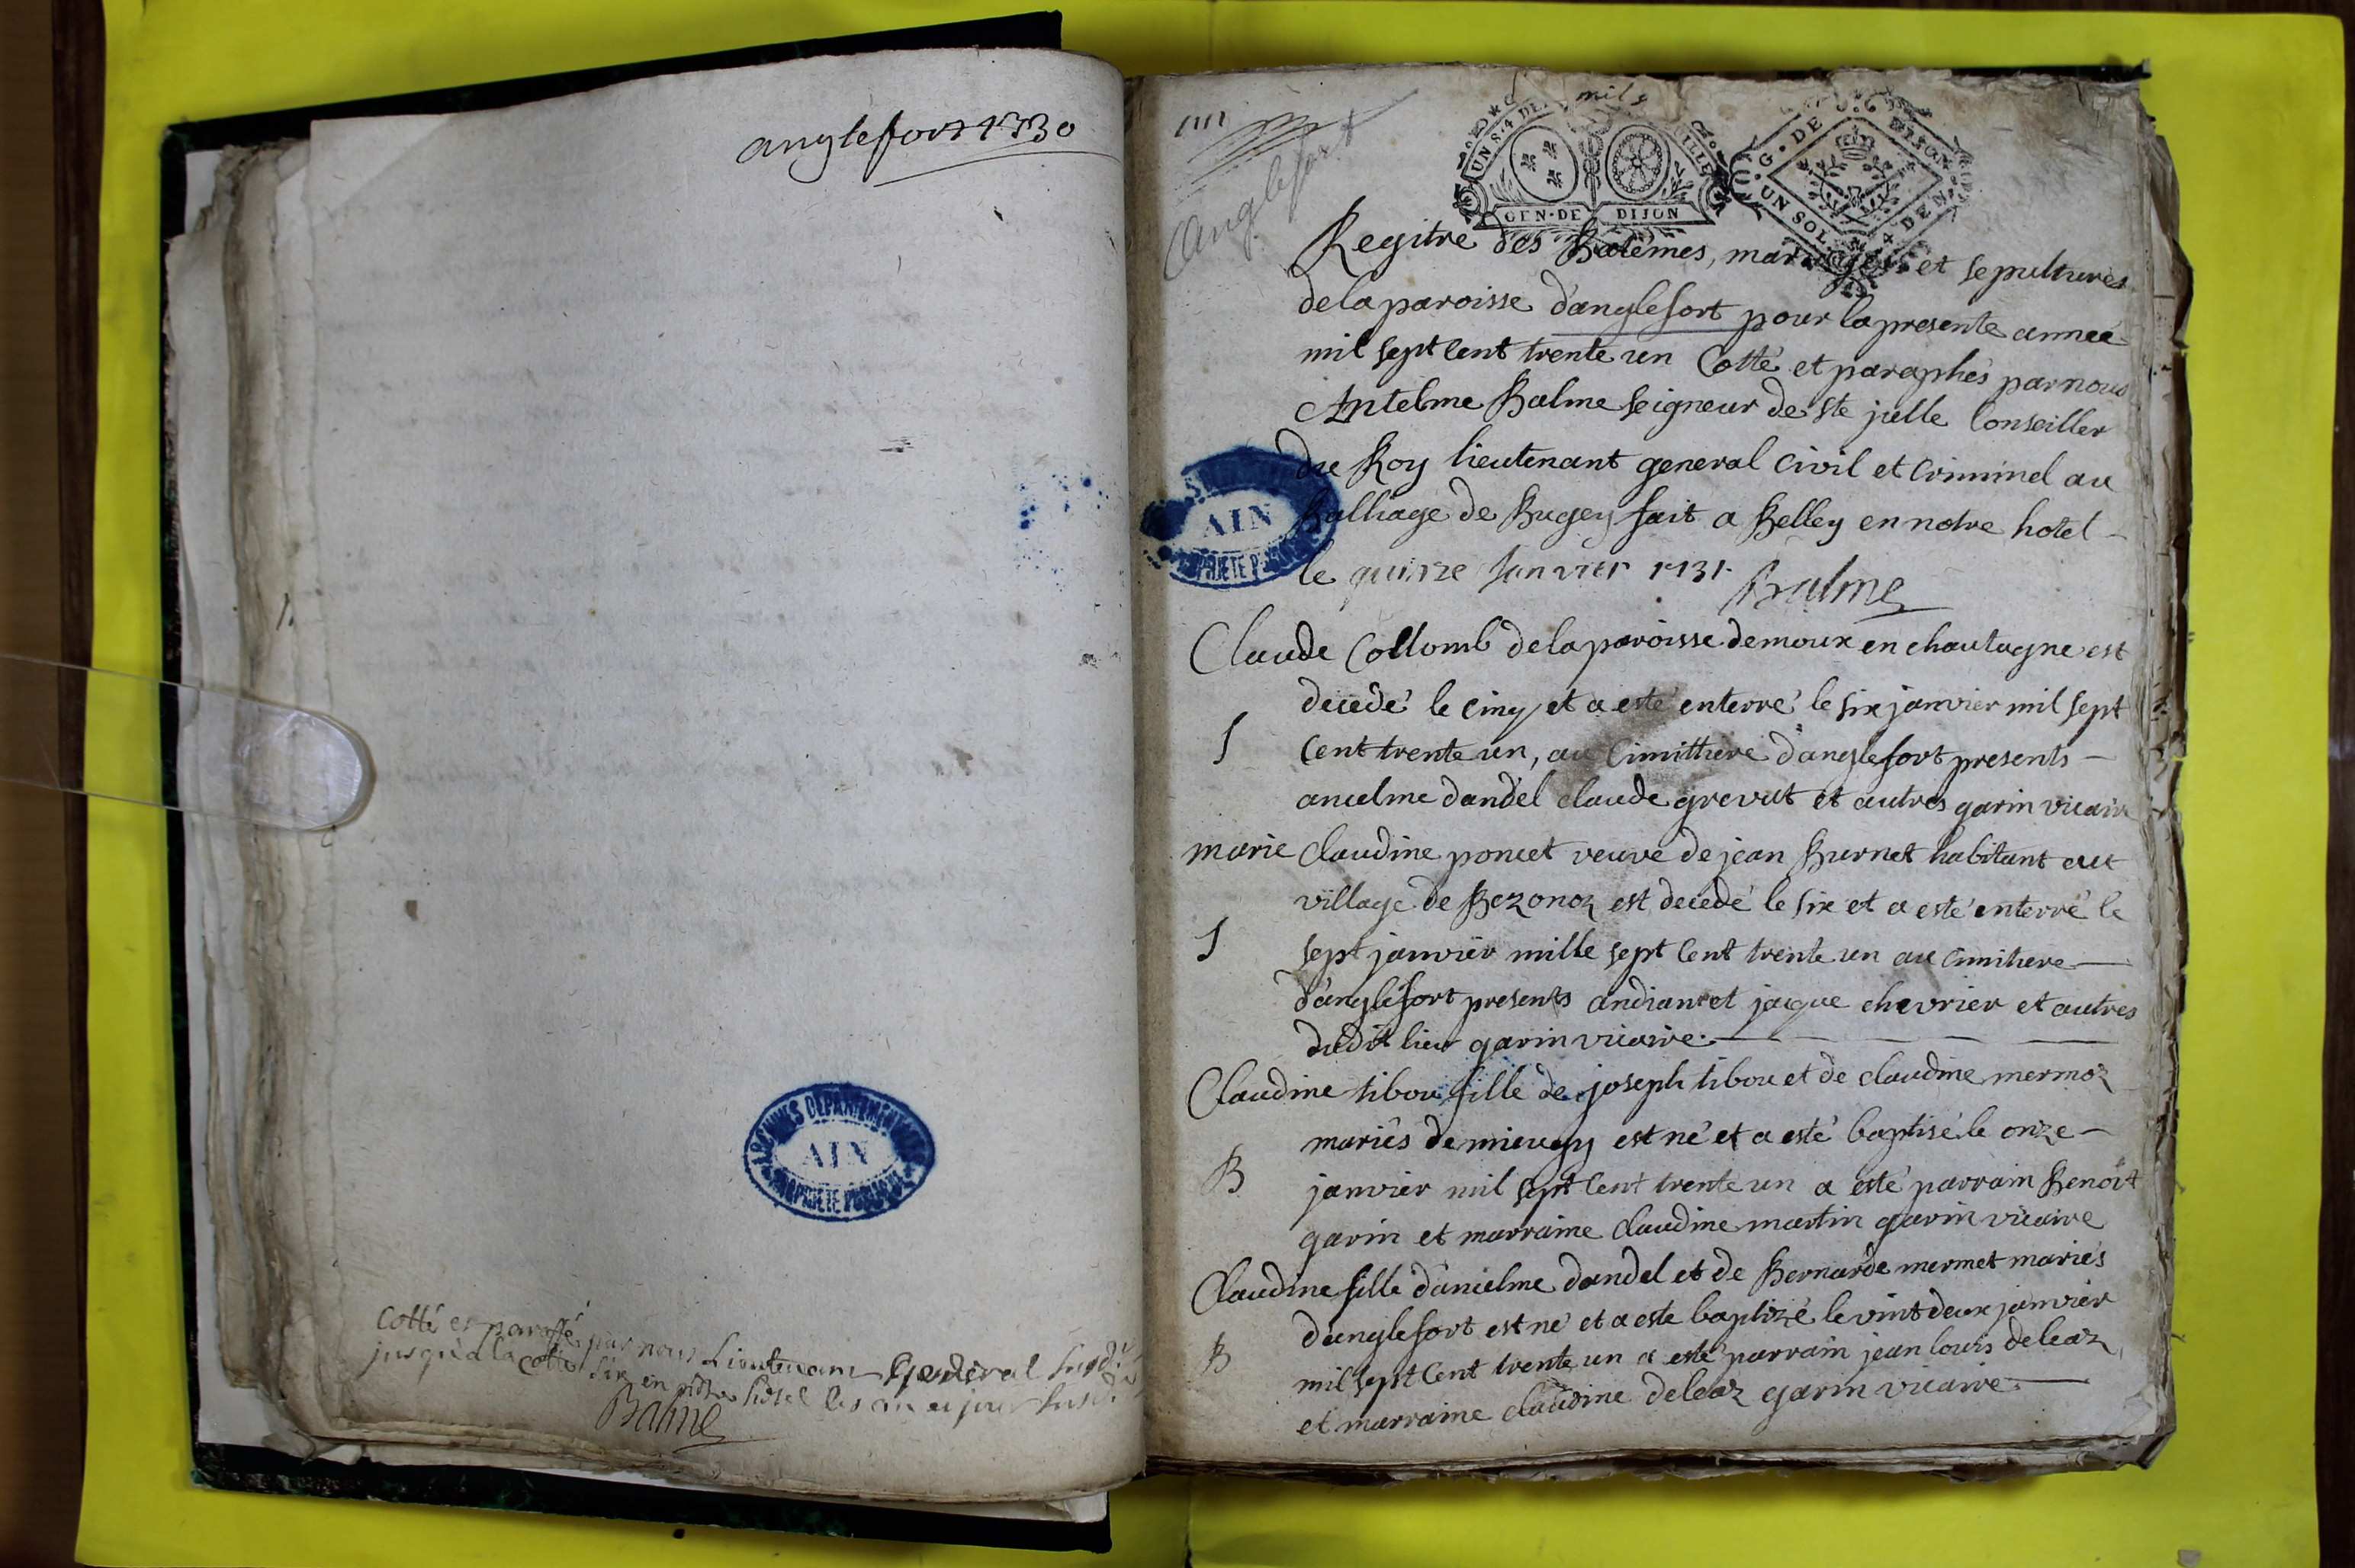 anglefort 1730
Cotté et paraffé par nous Lieutenant General susd.
jusqu'a la cotte six en notre hotel les an et jour susd.
Balme
ARCHIVES DEPARTEMENTALES
AIN
PROPRIETE PUBLIQUE
Anglefort
mil
UN S. 4 DE
GEN. DE DIJON
G. DE
UN SOL. 4 DEN.
Regitre des Batêmes, mariages et sepultures
de la paroisse d'anglefort pour la presente année
mil sept cent trente un Cotté et paraphés par nous
Antelme Balme seigneur de ste julle Conseiller
du Roy lieutenant general civil et criminel au
Balliage de Bugey fait a Belley en notre hotel
le quinze Janvier 1731.
Balme
AIN
PROPRIETE
Claude Collomb de la paroisse de moux en chautagne est
decedé le cinq et a esté enterré le six janvier mil sept
S cent trente un, au cimittiere d'anglefort presents
ancelme dandel claude grevut et autres garin vicaire
marie Claudine poncet veuve de jean Burnet habitant au
village de Bezonoz est decedé le six et a esté enterré le
S sept janvier mille sept cent trente un au cimitiere
d'anglefort presents et jaque chevrier et autres
dudit lieu garin vicaire.
Claudine tibou fille de joseph tibou et de claudine mermoz
mariés de mieugy est né et a esté baptisé le onze
B janvier mil sept cent trente un a esté parrain Benoit
garin et marraine claudine martin garin vicaire
Claudine fille d'anielme dandel et de Bernarde mermet mariés
d'anglefort est né et a este baptizé le vint deux janvier
B mil sept cent trente un a esté parrain jean louis deleaz
et marraine claudine deleaz garin vicaire